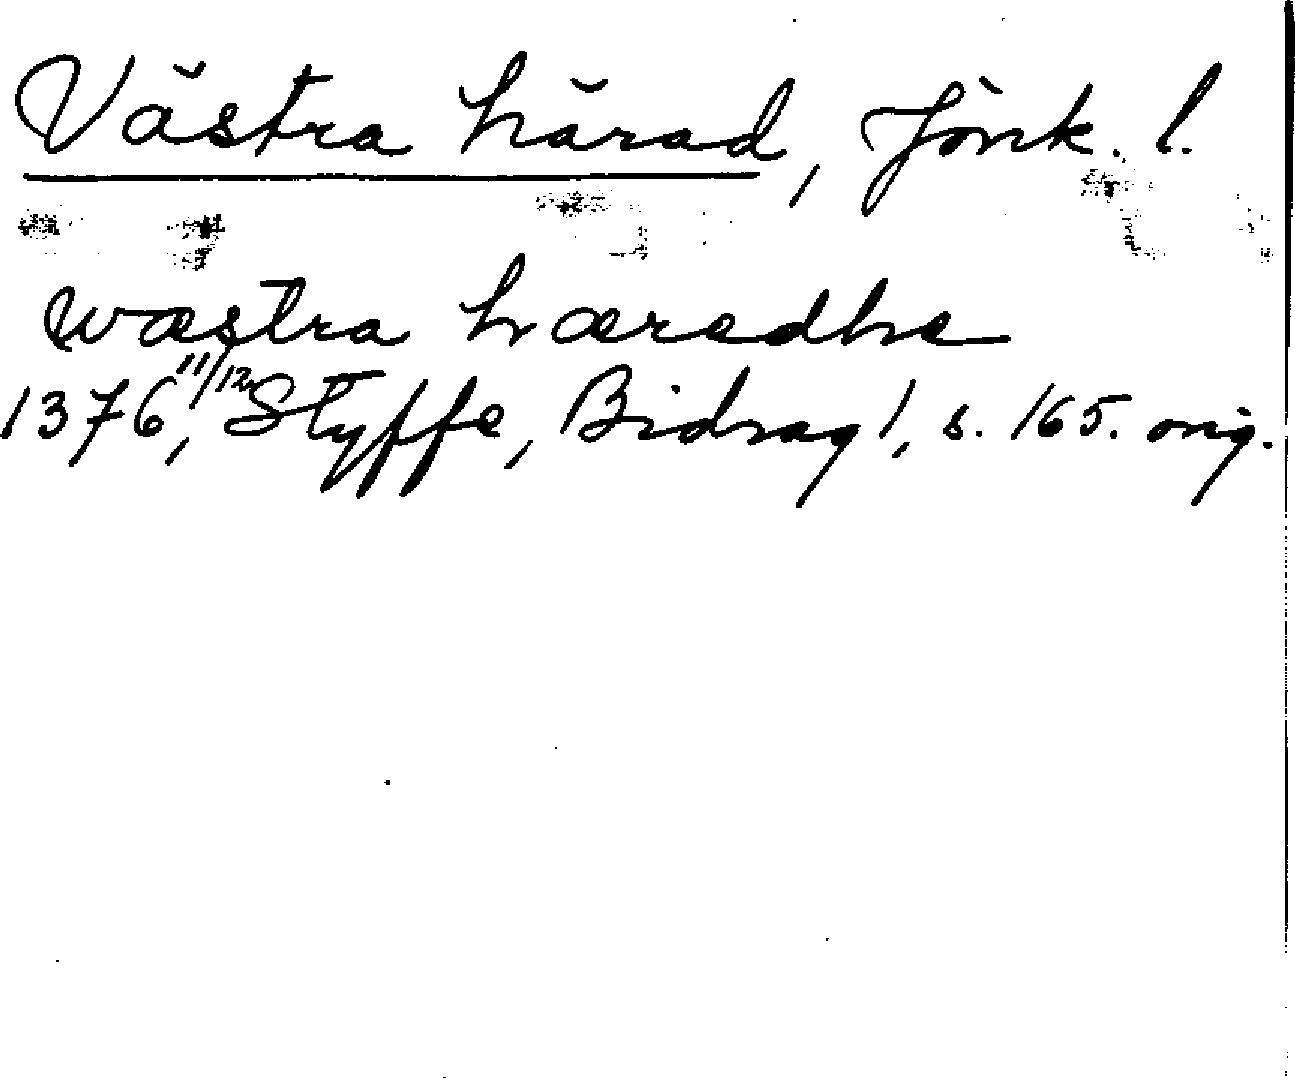 Västra härad, Jönk. l.
wæstra hæredhe
1376 11/12, Styffe, Bidrag 1, s. 165. orig.